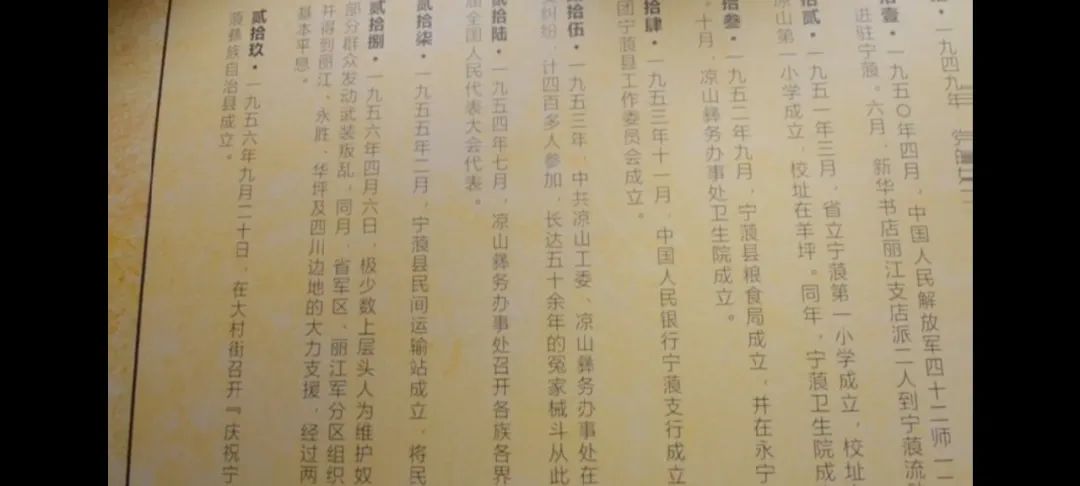 ·一九四九年
拾壹·一九五〇年四月,中国人民解放军四十二师一
进驻宁蒗。六月,新华书店丽江支店派二人到宁蒗流
拾贰·一九五一年三月,省立宁蒗第一小学成立,校址
凉山第一小学成立,校址在羊坪。同年,宁蒗卫生院成
拾叁·一九五二年九月,宁蒗县粮食局成立,并在永宁
。十月,凉山彝务办事处卫生院成立。
拾肆·一九五三年十一月,中国人民银行宁蒗支行成立
团宁蒗县工作委员会成立。
拾伍·一九五三年,中共凉山工委、凉山彝务办事处在
纠纷,计四百多人参加,长达五十余年的冤家械斗从此
贰拾陆·一九五四年七月,凉山彝务办事处召开各族各界
届全国人民代表大会代表。
贰拾柒·一九五五年二月,宁蒗县民间运输站成立,将民
贰拾捌·一九五六年四月六日,极少数上层头人为维护奴
部分群众发动武装叛乱,同月,省军区、丽江军分区组织
并得到丽江、永胜、华坪及四川边地的大力支援,经过两
基本平息。
贰拾玖·一九五六年九月二十日,在大村街召开『庆祝宁
蒗彝族自治县成立。